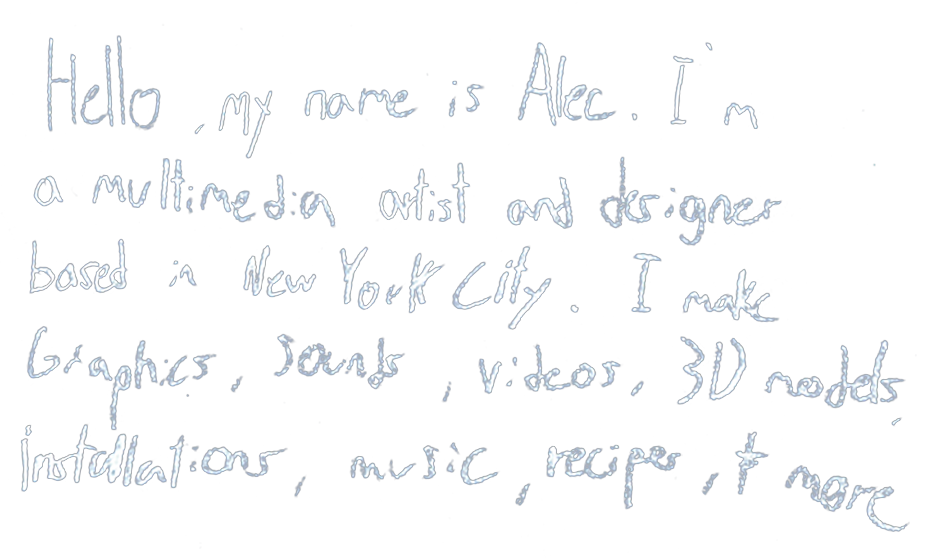 Hello, my name is Alec. I'm
a multimedia artist and designer
based in New York City. I make
Graphics, Sounds, videos, 3D models,
installations, music, recipes, + more